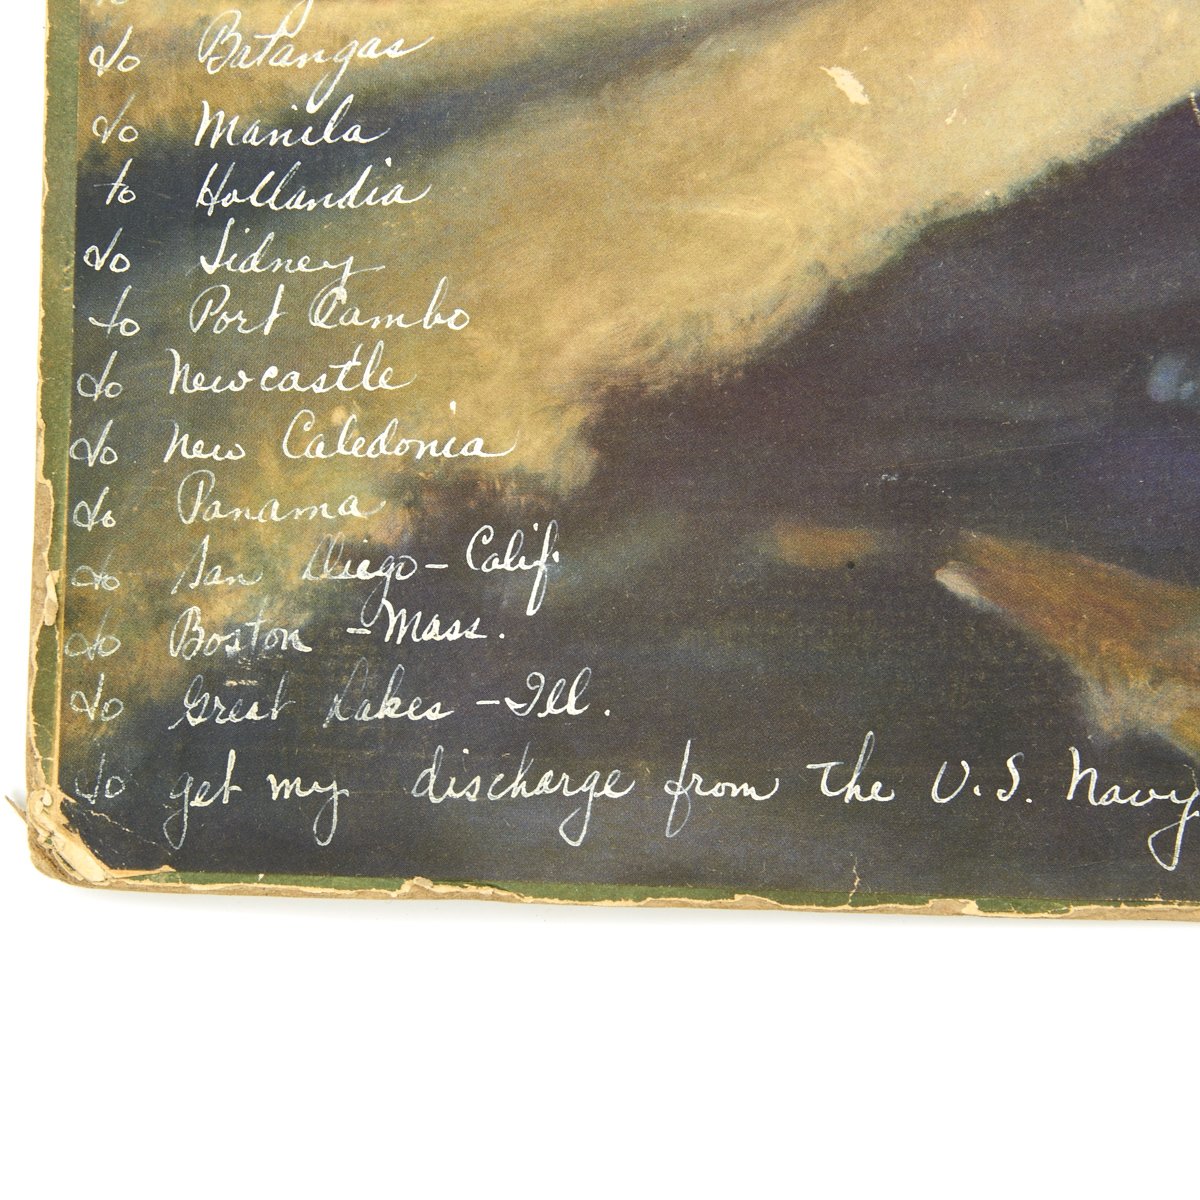 to Batangas
to Manila
to Hollandia
to Sidney
to Port Cambo
to Newcastle
to New Caledonia
to Panama
to San Diego - Calif.
to Boston - Mass.
to Great Lakes - Ill.
to get my discharge from the U.S. Navy